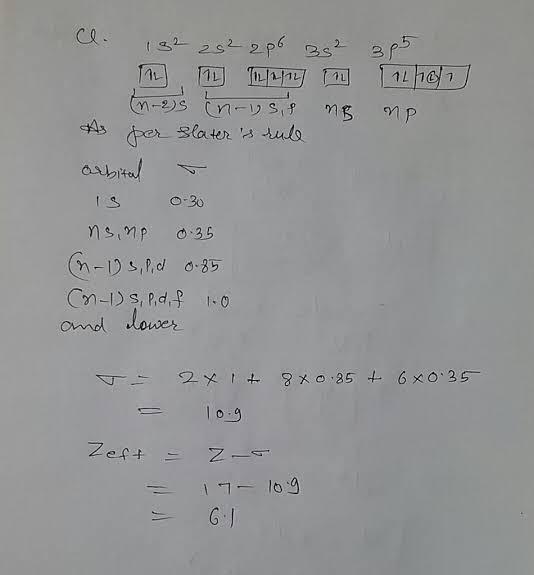 Cl.
1s² 2s² 2p⁶ 3s² 3p⁵
1L 1L 1L 1L 1L 1L 1L 1
(n-2)s (n-1)s,p ns np
As per Slater's rule
orbital σ
1s 0.30
ns, np 0.35
(n-1)s,p,d 0.85
(n-1)s,p,d,f 1.0
and lower
σ = 2×1 + 8×0.85 + 6×0.35
= 10.9
Zeff = Z-σ
= 17-10.9
= 6.1